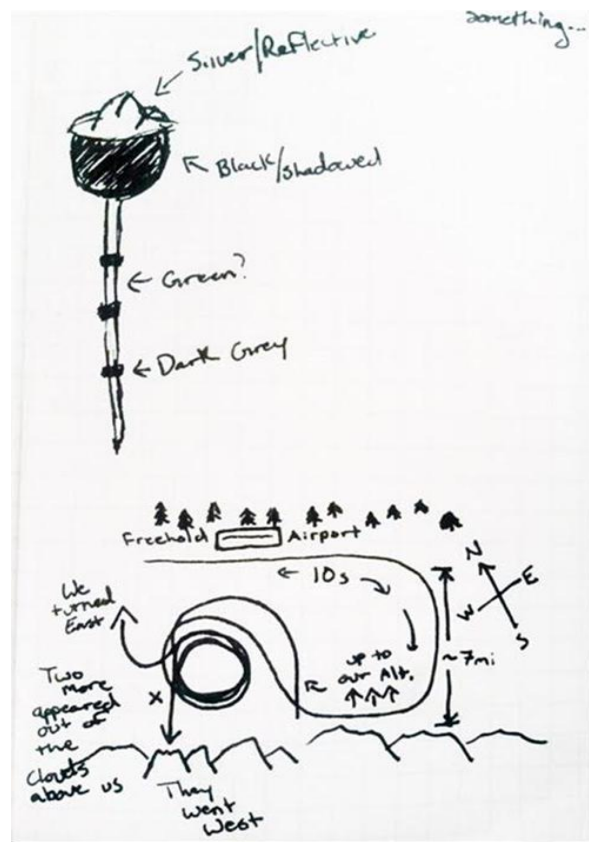 Something...
Silver/Reflective
Black/shadowed
Green?
Dark Grey
Freehold Airport
10s
N
E
W
S
We
turned
East
up to
our Alt.
~7mi
X
Two
more
appeared
out of
the
Clouds
above us
They
went
West